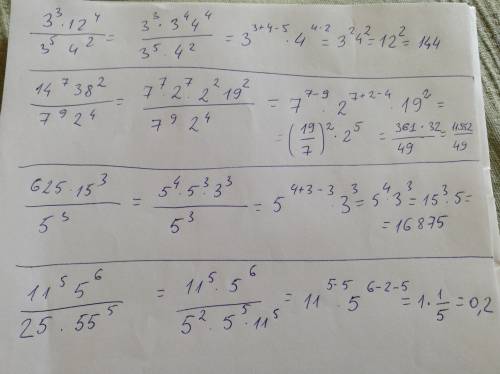 3³·12⁴/3⁵·4² = 3³·3⁴4⁴/3⁵·4² = 3³⁺⁴⁻⁵·4⁴⁻² = 3²4² = 12² = 144
14⁷38²/7⁹2⁴ = 7⁷2⁷·2²19²/7⁹2⁴ = 7⁷⁻⁹·2⁷⁺²⁻⁴·19² =
= (19/7)²·2⁵ = 361·32/49 = 11552/49
625·15³/5³ = 5⁴·5³·3³/5³ = 5⁴⁺³⁻³·3³ = 5⁴·3³ = 15³·5 =
= 16875
11⁵5⁶/25·55⁵ = 11⁵·5⁶/5²·5⁵·11⁵ = 11⁵⁻⁵·5⁶⁻²⁻⁵ = 1·1/5 = 0,2